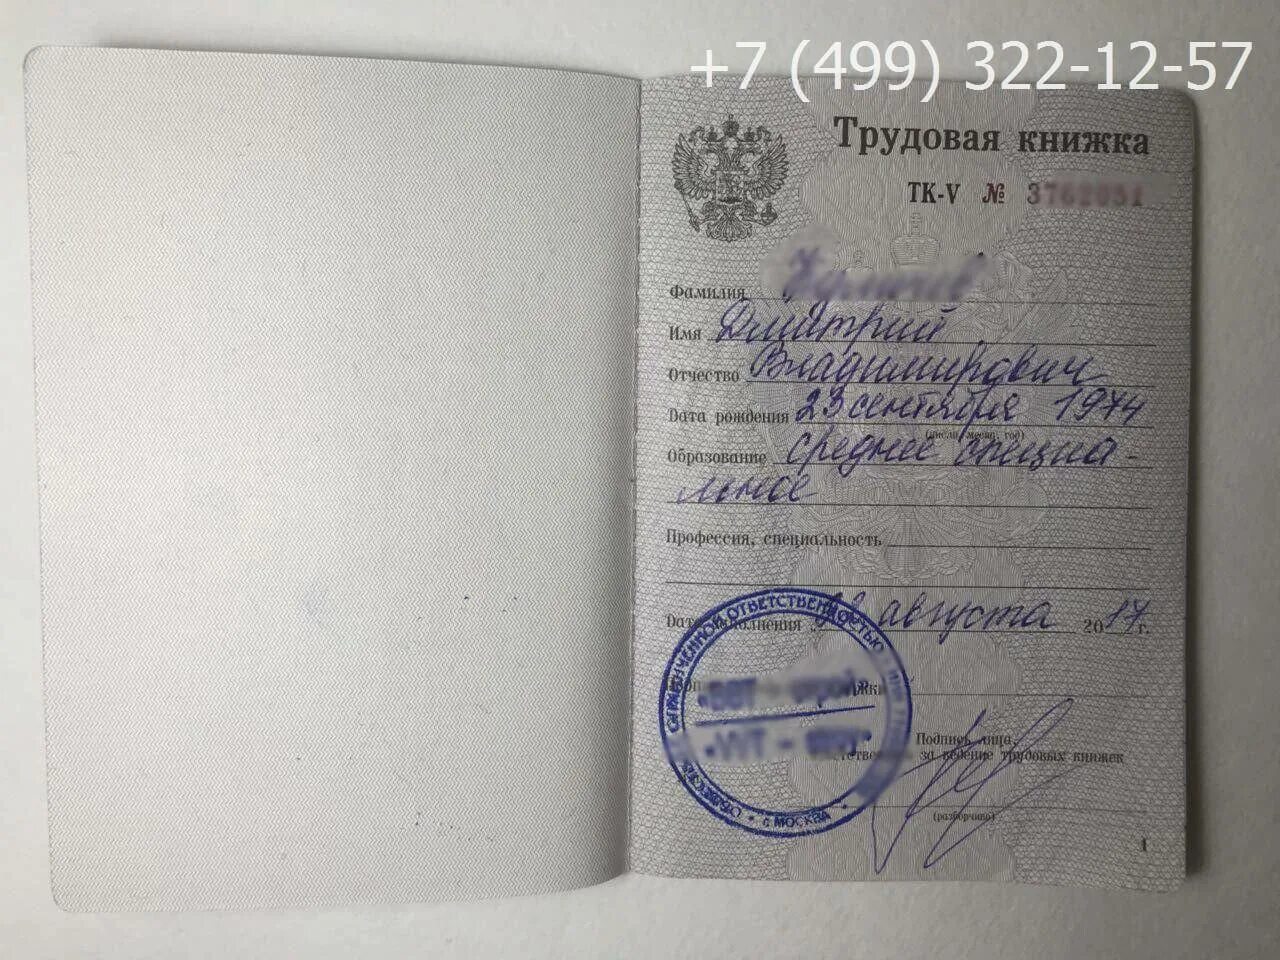 +7 (499) 322-12-57
Трудовая книжка
ТК-V № 3762051
Фамилия
Имя Дмитрий
Отчество Владимирович
Дата рождения 23 сентября 1974
(число, месяц, год)
Образование среднее специа-
льное
Профессия, специальность
Дата заполнения августа 2017 г.
Подпись лица,
за ведение трудовых книжек
(разборчиво)
ОГРАНИЧЕННОЙ ОТВЕТСТВЕННОСТЬЮ
г. МОСКВА
1